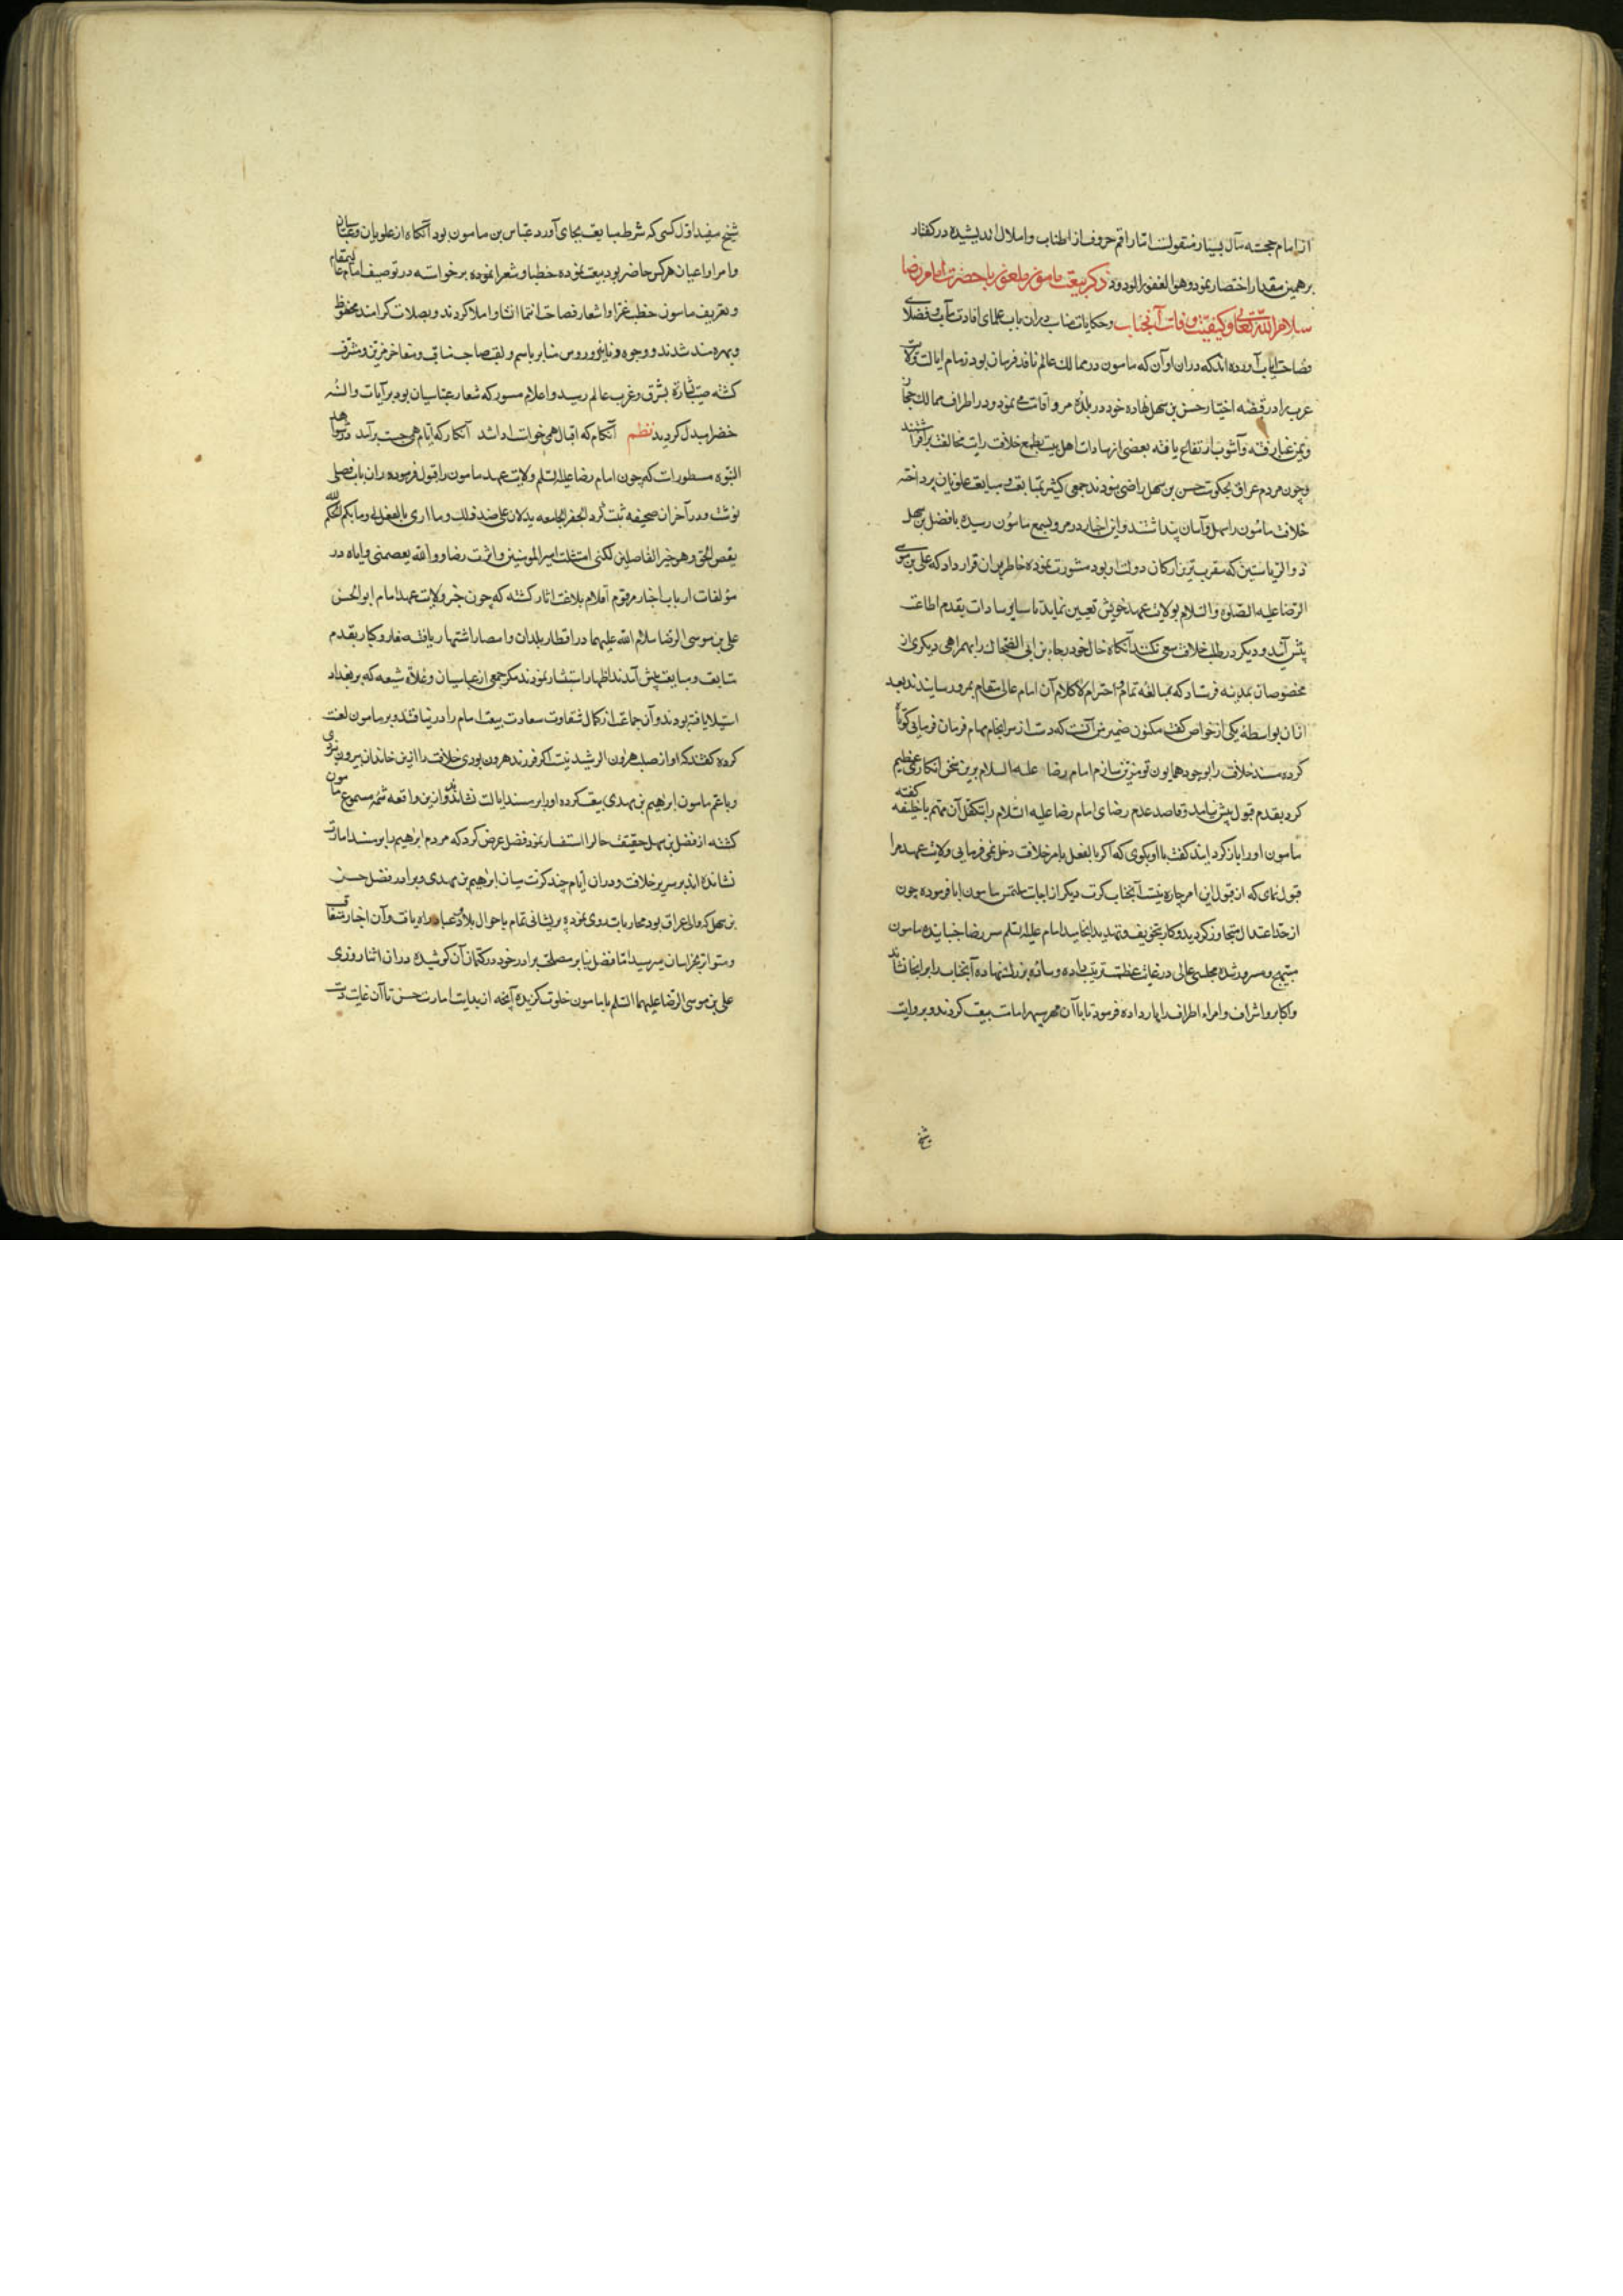 از امام حجسته مآل بسیار منقولست اما راقم حروف از اطناب و املال اندیشیده در گفتار
برهمین مقدار اختصار نمود وهو الغفور الودود ذکر بیعت مامون ملعون با حضرت امام رضا
سلام الله تعالی و کیفیت وفات آنجناب و حکایات مناسب دران باب علمای افادت مآب و فضلای
فصاحت ایاب آورده اند که دران اوان که مامون در ممالک عالم نافذ فرمان بود زمام ایالت ولایت
عرب را در قبضه اختیار حسن بن سهل نهاده خود در بلده مرو اقامت می نمود و در اطراف ممالک حجاز
و یمن غبار فتنه و آشوب ارتفاع یافته بعضی از سادات اهل بیت بطمع خلافت رایت مخالفت برافراشتند
و چون مردم عراق بحکومت حسن بن سهل راضی نبودند جمعی کثیر بمتابعت و مبایعت علویان پرداخته
خلاف مامون را سهل و آسان پنداشتند و این اخبار در مرو بسمع مامون رسیده با فضل بن سهل
ذو الریاستین که مقرب ترین ارکان دولت او بود مشورت نموده خاطر بران قرار داد که علی بن موسی
الرضا علیه الصلوة والسلام بولایت عهد خویش تعیین نماید تا سایر سادات بقدم اطاعت
پیش آیند و دیگر در طلب خلافت سعی نکنند آنگاه خال خود رجاء بن ابی الضحاک را بهمراهی دیگری از
مخصوصان بمدینه فرستاد که بمبالغه تمام و احترام لاکلام آن امام عالی مقام بمرو رسانیدند بعد
ازان بواسطه یکی از خواص گفت مکنون ضمیر من آنست که دست از سرانجام مهام فرمان فرمایی کوتاه
کرده مسند خلافت را بوجود همایون تو مزین سازم امام رضا علیه السلام برین سخن انکار عظیم
کرد بقدم قبول پیش نیامد و قاصد عدم رضای امام رضا علیه السلام را بتکفل آن مهم با خلیفه گفته
مامون او را باز گردانیده گفت با او بگوی که اگر بالفعل بامر خلافت دخل نمی فرمایی ولایت عهد مرا
قبول نمای که از قبول این امر چاره نیست آنجناب کرت دیگر از اجابت ملتمس مامون ابا فرموده چون
از حد اعتدال متجاوز گردید و کار بتخویف و تهدید انجامید امام علیه السلم سر رضا جنبانیده مامون
مبتهج و مسرور شده مجلسی عالی در غایت عظمت ترتیب داده وساده بزرگ نهاده آنجناب را برانجا نشاند
واکابر و اشراف و امراء اطراف را بار داده فرمود تا با آن مهر سپهر امامت بیعت کردند و بروایت
شیخ
شیخ مفید اول کسی که شرط مبایعت بجای آورد عباس بن مامون بود آنگاه از علویان و عباسیان
و امرا و اعیان هر کس حاضر بود بیعت نموده خطبا و شعرا نموده برخواسته در توصیف امام عالیمقام
و تعریف مامون خطب غرا و اشعار فصاحت انتما انشا و املا کردند و بصلات گرامند محظوظ
و بهره مند شدند و وجوه دنانیر و روس منابر باسم و لقب صاحب مناقب و مفاخر مزین و مشرف
گشته صیت بشارة بشرق و غرب عالم رسید و اعلام مسور که شعار عباسیان بود برآیات و السنه
خضرا مبدل کردید نظم آنکام که اقبال همی خواست ادا شد آنکار که ایام همی جست برآمد در شواهد
النبوه مسطورات که چون امام رضا علیه السلم ولایت عهد مامون را قبول فرموده دران باب فصلی
نوشت و در آخر آن صحیفه ثبت کرد الجفر الجامعه یدلان علی ضد ذلک و ما ادری ما یفعل بی وما بکم ان الحکم الا لله
یقص الحق و هو خیر الفاصلین لکنی امتثلت امیر المومنین و اثرت رضاه والله یعصمنی و ایاه در
مؤلفات ارباب اخبار مرقوم اقلام بلاغت اثار گشته که چون خبر ولایت عهد امام ابو الحسن
علی بن موسی الرضا سلام الله علیهما در اقطار بلدان و امصار اشتهار یافت صغار و کبار بقدم
متابعت و مبایعت پیش آمدند اظهار استبشار نمودند مگر جمعی از عباسیان و غلاة شیعه که بر بغداد
استیلا یافته بودند و آن جماعت از کمال شقاوت سعادت بیعت امام را در نیافتند و بر مامون لعنت
کرده گفتند که او از صلب هرون الرشید نیست اگر فرزند هرون بودی خلافت را ازین خاندان بیرون نبردی
و با عم مامون ابرهیم بن مهدی بیعت کرده او را بر مسند ایالت نشاندند و ازین واقعه شمه مسموع مامون
گشته از فضل بن سهل حقیقت حال را استفسار نمود فضل عرض کرد که مردم ابرهیم را بر مسند امارت
نشانده اند بر سریر خلافت و دران ایام چند کرت میان ابرهیم بن مهدی و برادر فضل حسن
بن سهل که والی عراق بود محاربات روی نموده پریشانی تمام باحوال بلاد و عباد راه یافت و آن اخبار متعاقب
و متواتر بخراسان میرسید اما فضل بنابر مصلحت برادر خود در کتمان آن کوشیده دران اثنا روزی
علی بن موسی الرضا علیهما السلم با مامون خلوت گزیده آنچه از بدایت امارت حسن تا آن غایت دست